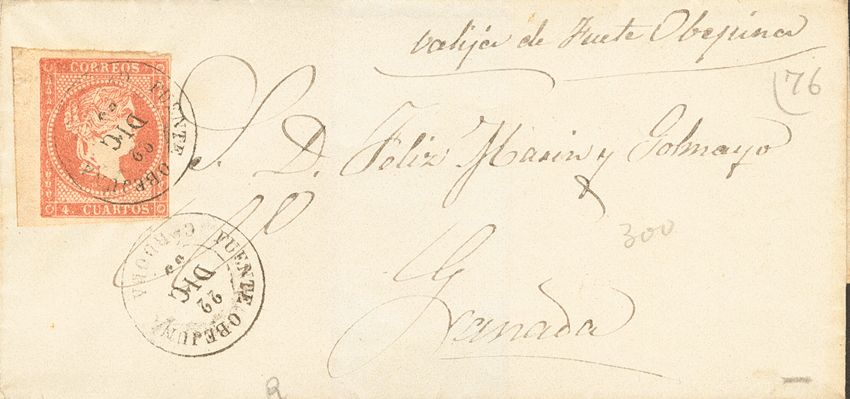 valija de Fuete Obejuna
CORREOS
4. CUARTOS
FUENTE OBEJUNA
22
DIC
76
S. D. Feliz Marin y Golmayo
300
Granada
FUENTE OBEJUNA
CORDOBA
22
DIC